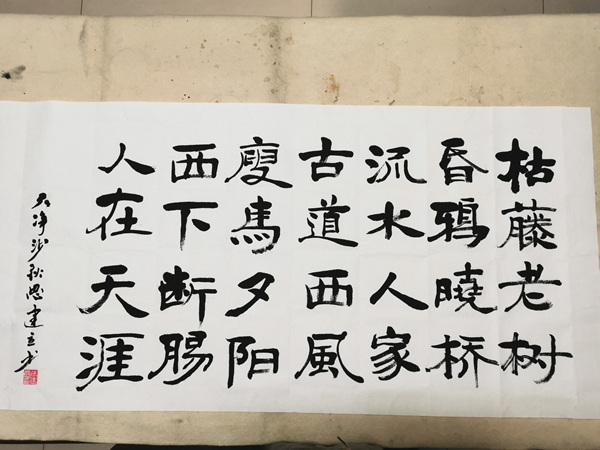 枯藤老树
昏鸦曉桥
流水人家
古道西風
廋馬夕阳
西下断腸
人在天涯
天净沙秋思建立书